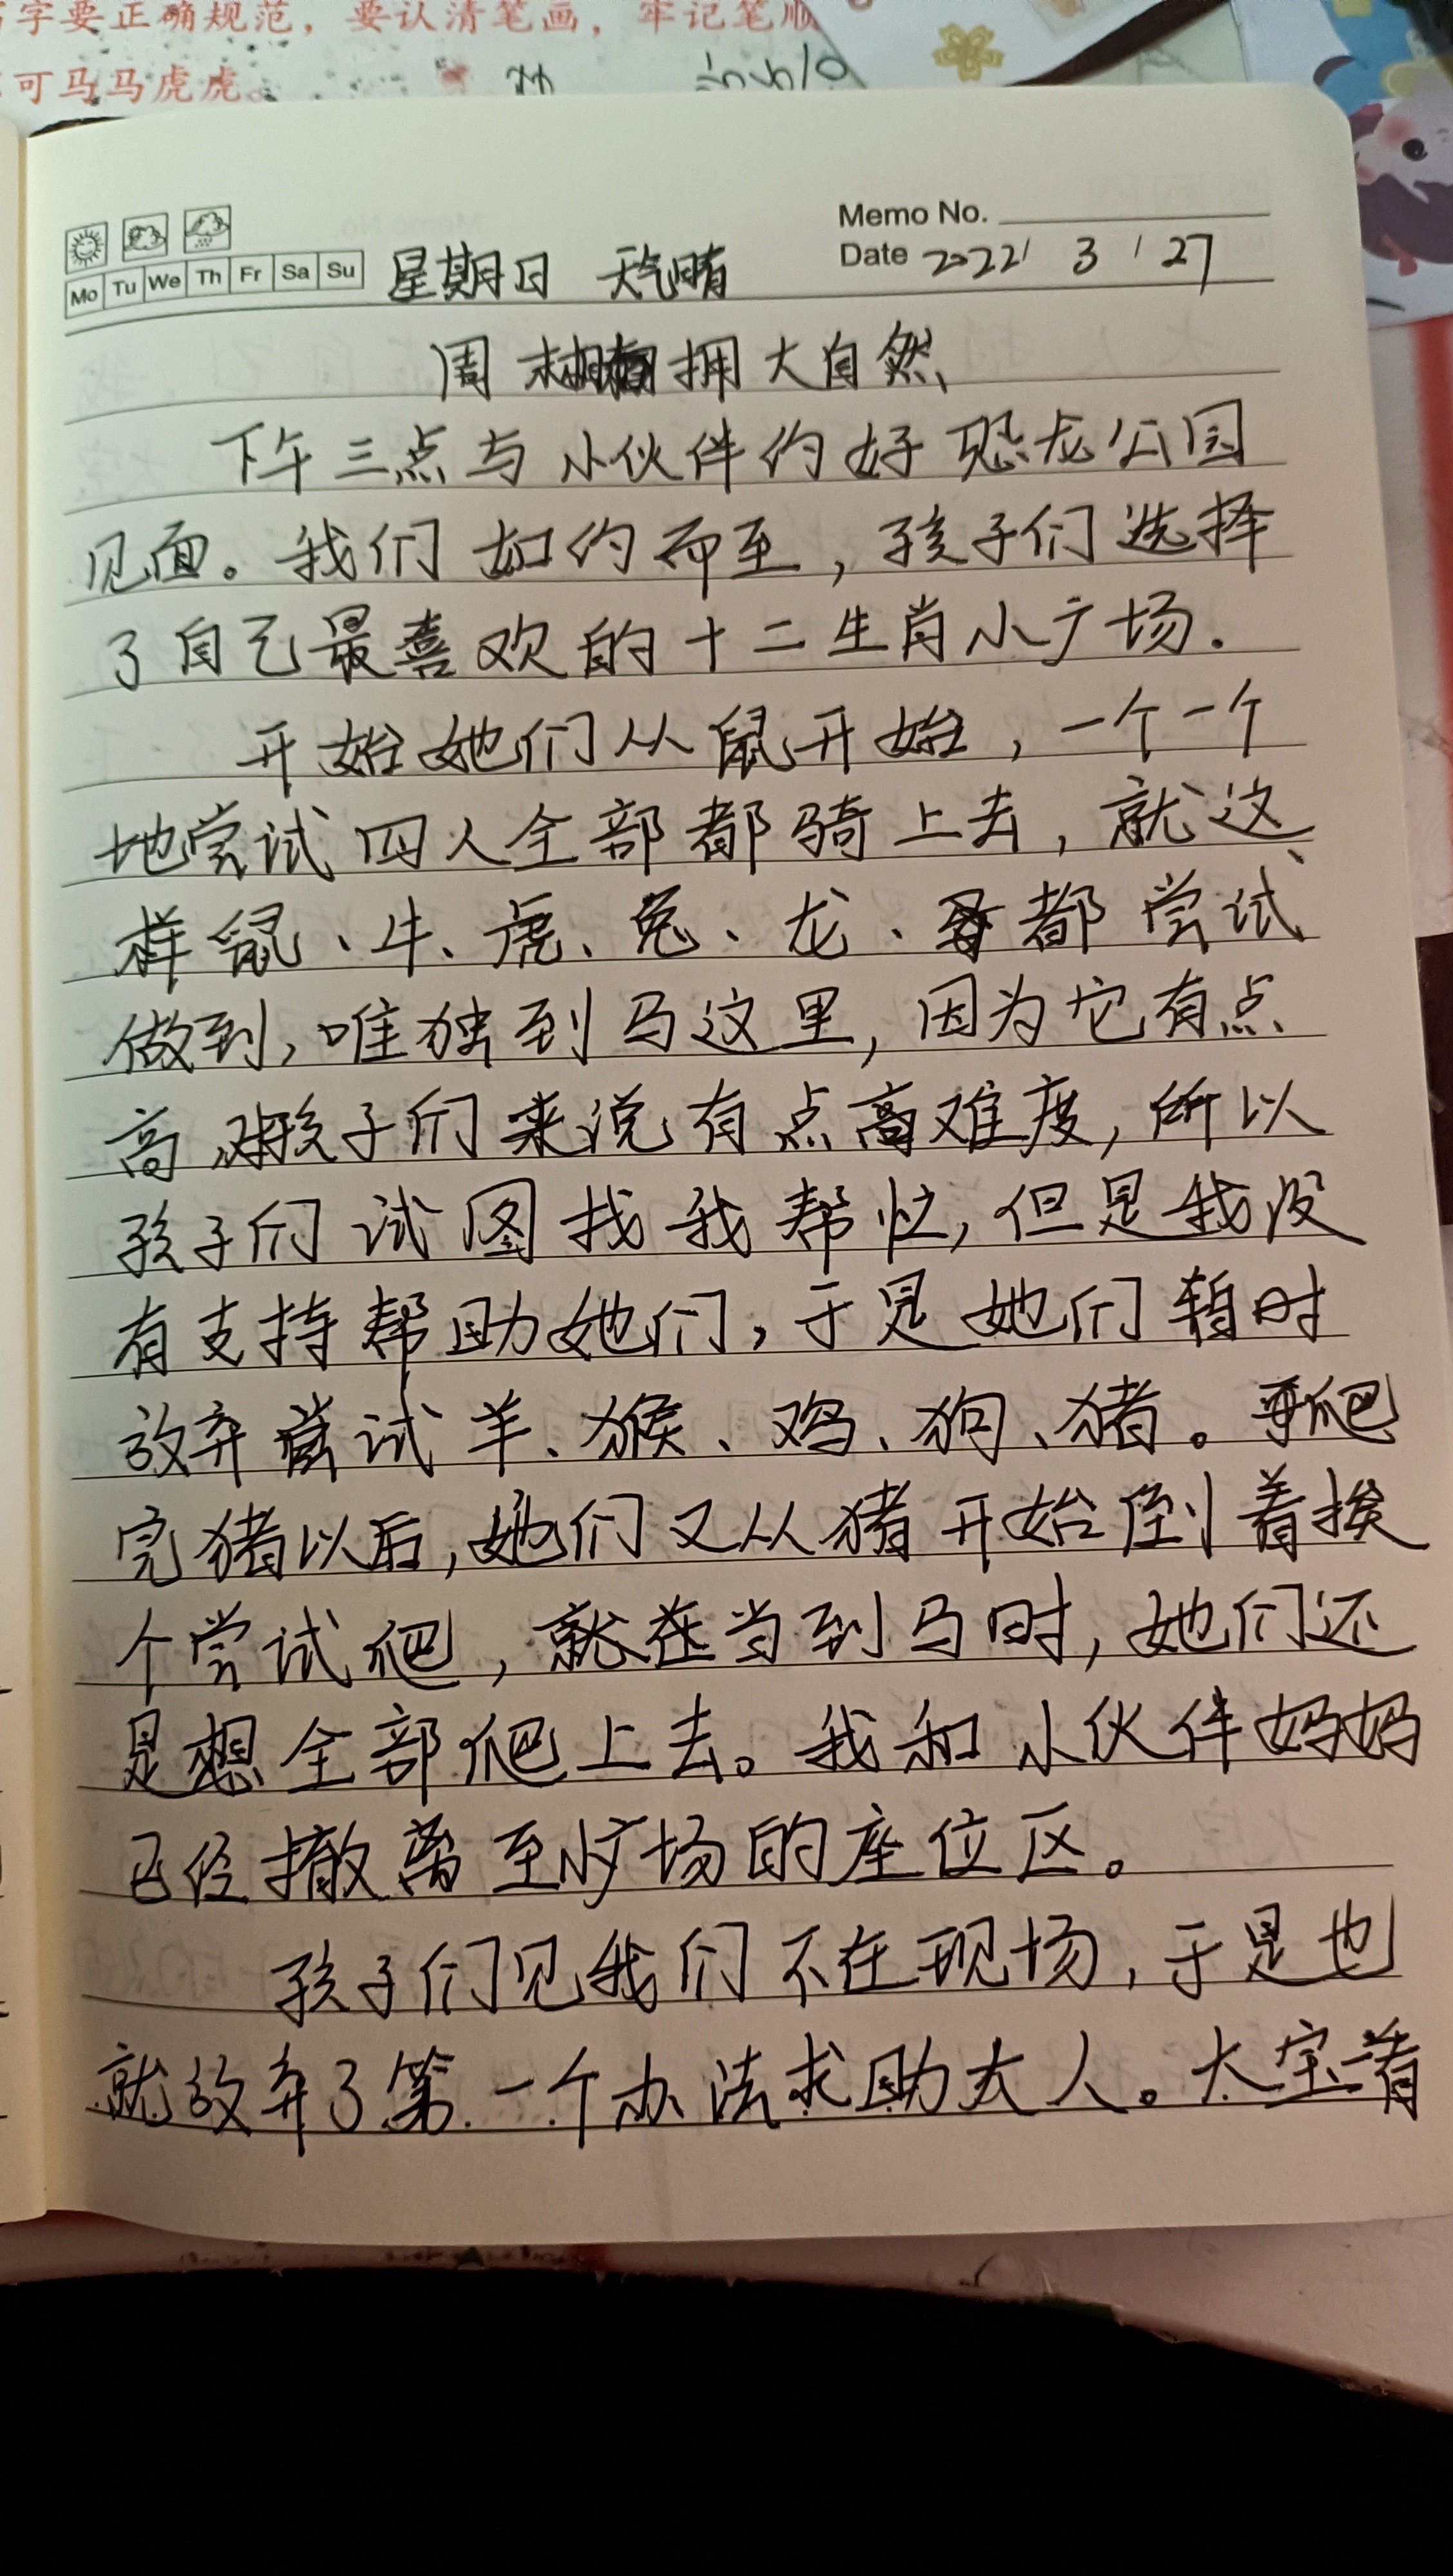 字要正确规范，要认清笔画，牢记笔顺
可马马虎虎。
Memo No.
Date 2022/ 3 / 27
Mo Tu We Th Fr Sa Su 星期日 天气晴
周末拥大自然
下午三点与小伙伴约好恐龙公园
见面。我们如约而至，孩子们选择
了自己最喜欢的十二生肖小广场.
开始她们从鼠开始，一个一个
地尝试四人全部都骑上去，就这
样鼠、牛、虎、兔、龙、都尝试
做到，唯独到马这里，因为它有点
高对孩子们来说有点高难度，所以
孩子们试图找我帮忙，但是我没
有支持帮助她们，于是她们暂时
放弃尝试羊、猴、鸡、狗、猪。爬
完猪以后，她们又从猪开始倒着挨
个尝试爬，就在当到马时，她们还
是想全部爬上去。我和小伙伴妈妈
已经撤离至小广场的座位区。
孩子们见我们不在现场，于是也
就放弃了第一个办法求助大人。大宝着